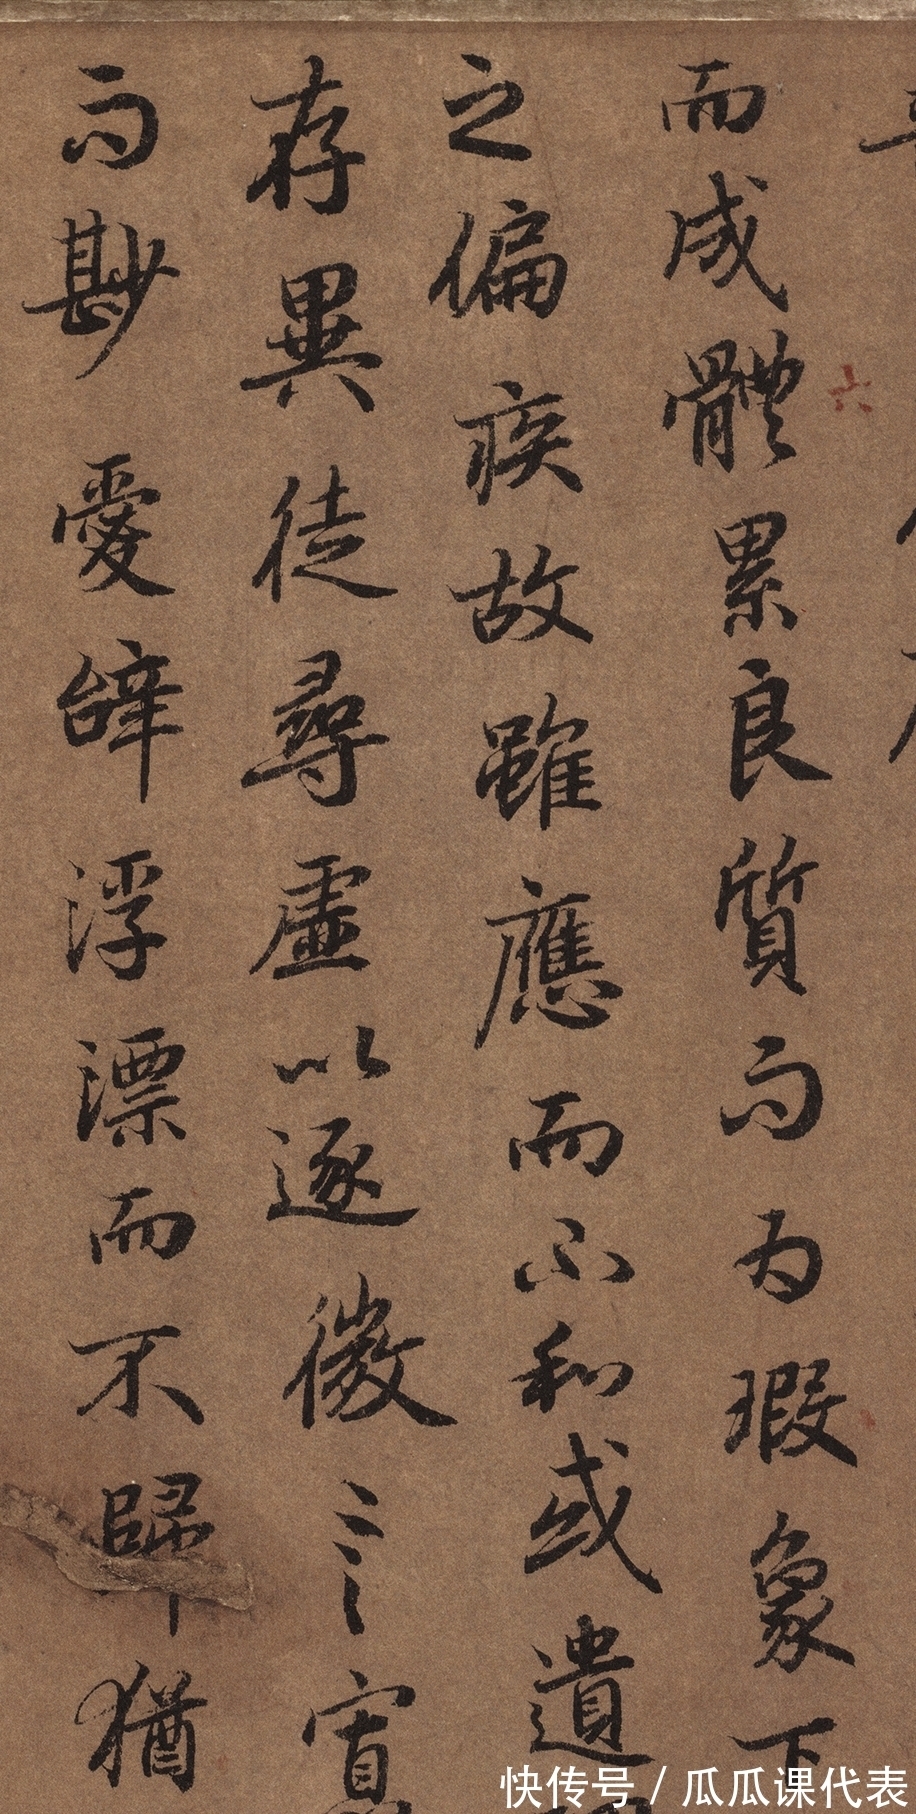 而成體累良質而為瑕象下
之偏疾故雖應而不和或遺
存異徒尋虛以逐微言寡
而尠愛辭浮漂而不歸猶
六
快传号 / 瓜瓜课代表